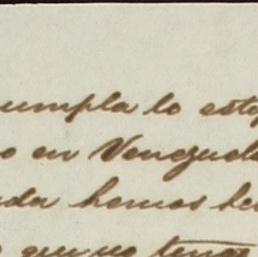 umpla lo esty
o en Venezuela
da hemos he
que no tengo